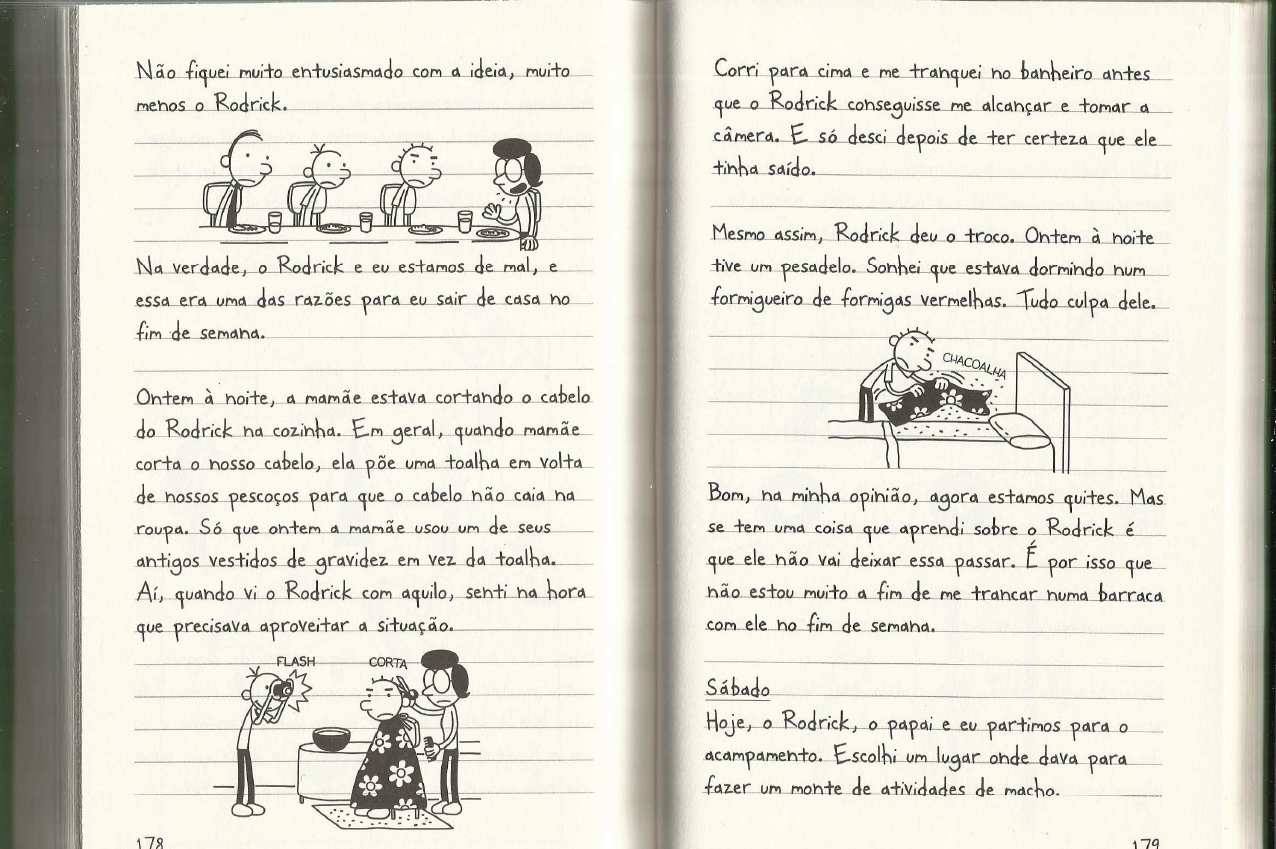 Não fiquei muito entusiasmado com a ideia, muito
menos o Rodrick.
Na verdade, o Rodrick e eu estamos de mal, e
essa era uma das razões para eu sair de casa no
fim de semana.
Ontem à noite, a mamãe estava cortando o cabelo
do Rodrick na cozinha. Em geral, quando mamãe
corta o nosso cabelo, ela põe uma toalha em volta
de nossos pescoços para que o cabelo não caia na
roupa. Só que ontem a mamãe usou um de seus
antigos vestidos de gravidez em vez da toalha.
Aí, quando vi o Rodrick com aquilo, senti na hora
que precisava aproveitar a situação.
FLASH
CORTA
178
Corri para cima e me tranquei no banheiro antes
que o Rodrick conseguisse me alcançar e tomar a
câmera. E só desci depois de ter certeza que ele
tinha saído.
Mesmo assim, Rodrick deu o troco. Ontem à noite
tive um pesadelo. Sonhei que estava dormindo num
formigueiro de formigas vermelhas. Tudo culpa dele.
CHACOALHA
Bom, na minha opinião, agora estamos quites. Mas
se tem uma coisa que aprendi sobre o Rodrick é
que ele não vai deixar essa passar. É por isso que
não estou muito a fim de me trancar numa barraca
com ele no fim de semana.
Sábado
Hoje, o Rodrick, o papai e eu partimos para o
acampamento. Escolhi um lugar onde dava para
fazer um monte de atividades de macho.
179